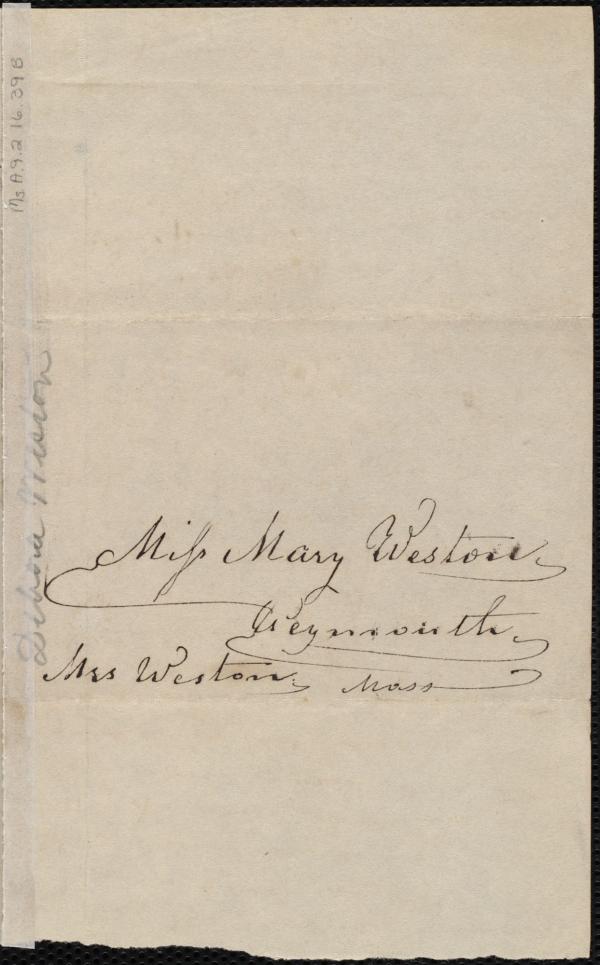 Ms A.9.2 16.39B
Debora Weston
Miss Mary Weston.
Weymouth.
Mrs Weston. Mass